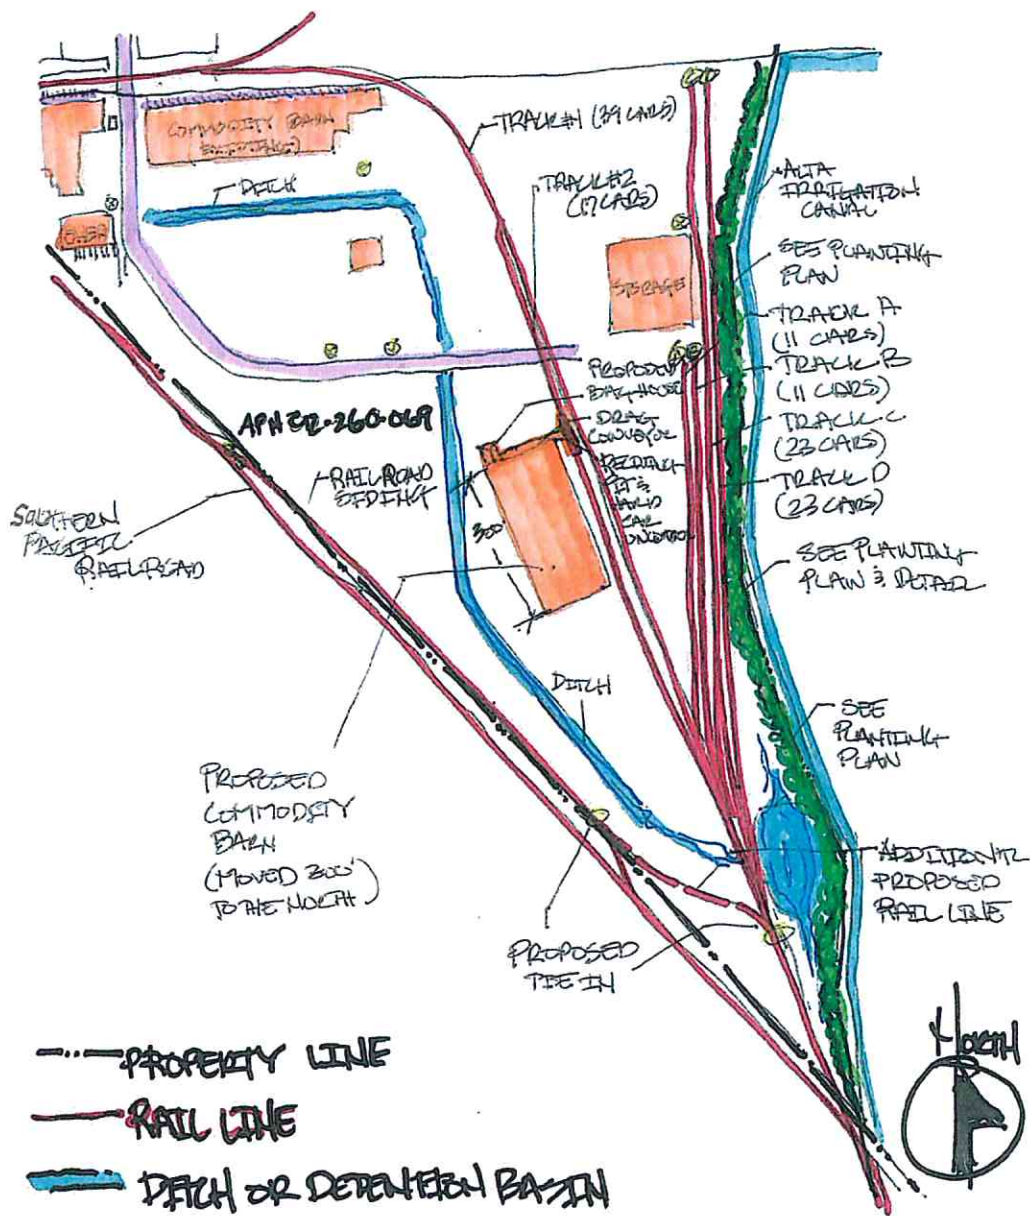 COMMODITY BARN
TRACK #1 (39 CARS)
DITCH
TRACK #2
(17 CARS)
ALTA
IRRIGATION
CANAL
SHOP
STORAGE
SEE PLANTING
PLAN
TRACK A
(11 CARS)
TRACK B
(11 CARS)
TRACK C
(23 CARS)
TRACK D
(23 CARS)
PROPOSED
BAGHOUSE
DRAG
CONVEYOR
PIT &
RAIL
CAR
RAILROAD
300'
SOUTHERN
PACIFIC
RAILROAD
SEE PLANTING
PLAN & DETAIL
DITCH
SEE
PLANTING
PLAN
PROPOSED
COMMODITY
BARN
(MOVED 300'
TO THE NORTH)
ADDITION'L
PROPOSED
RAIL LINE
PROPOSED
TIE IN
NORTH
PROPERTY LINE
RAIL LINE
DITCH OR DETENTION BASIN